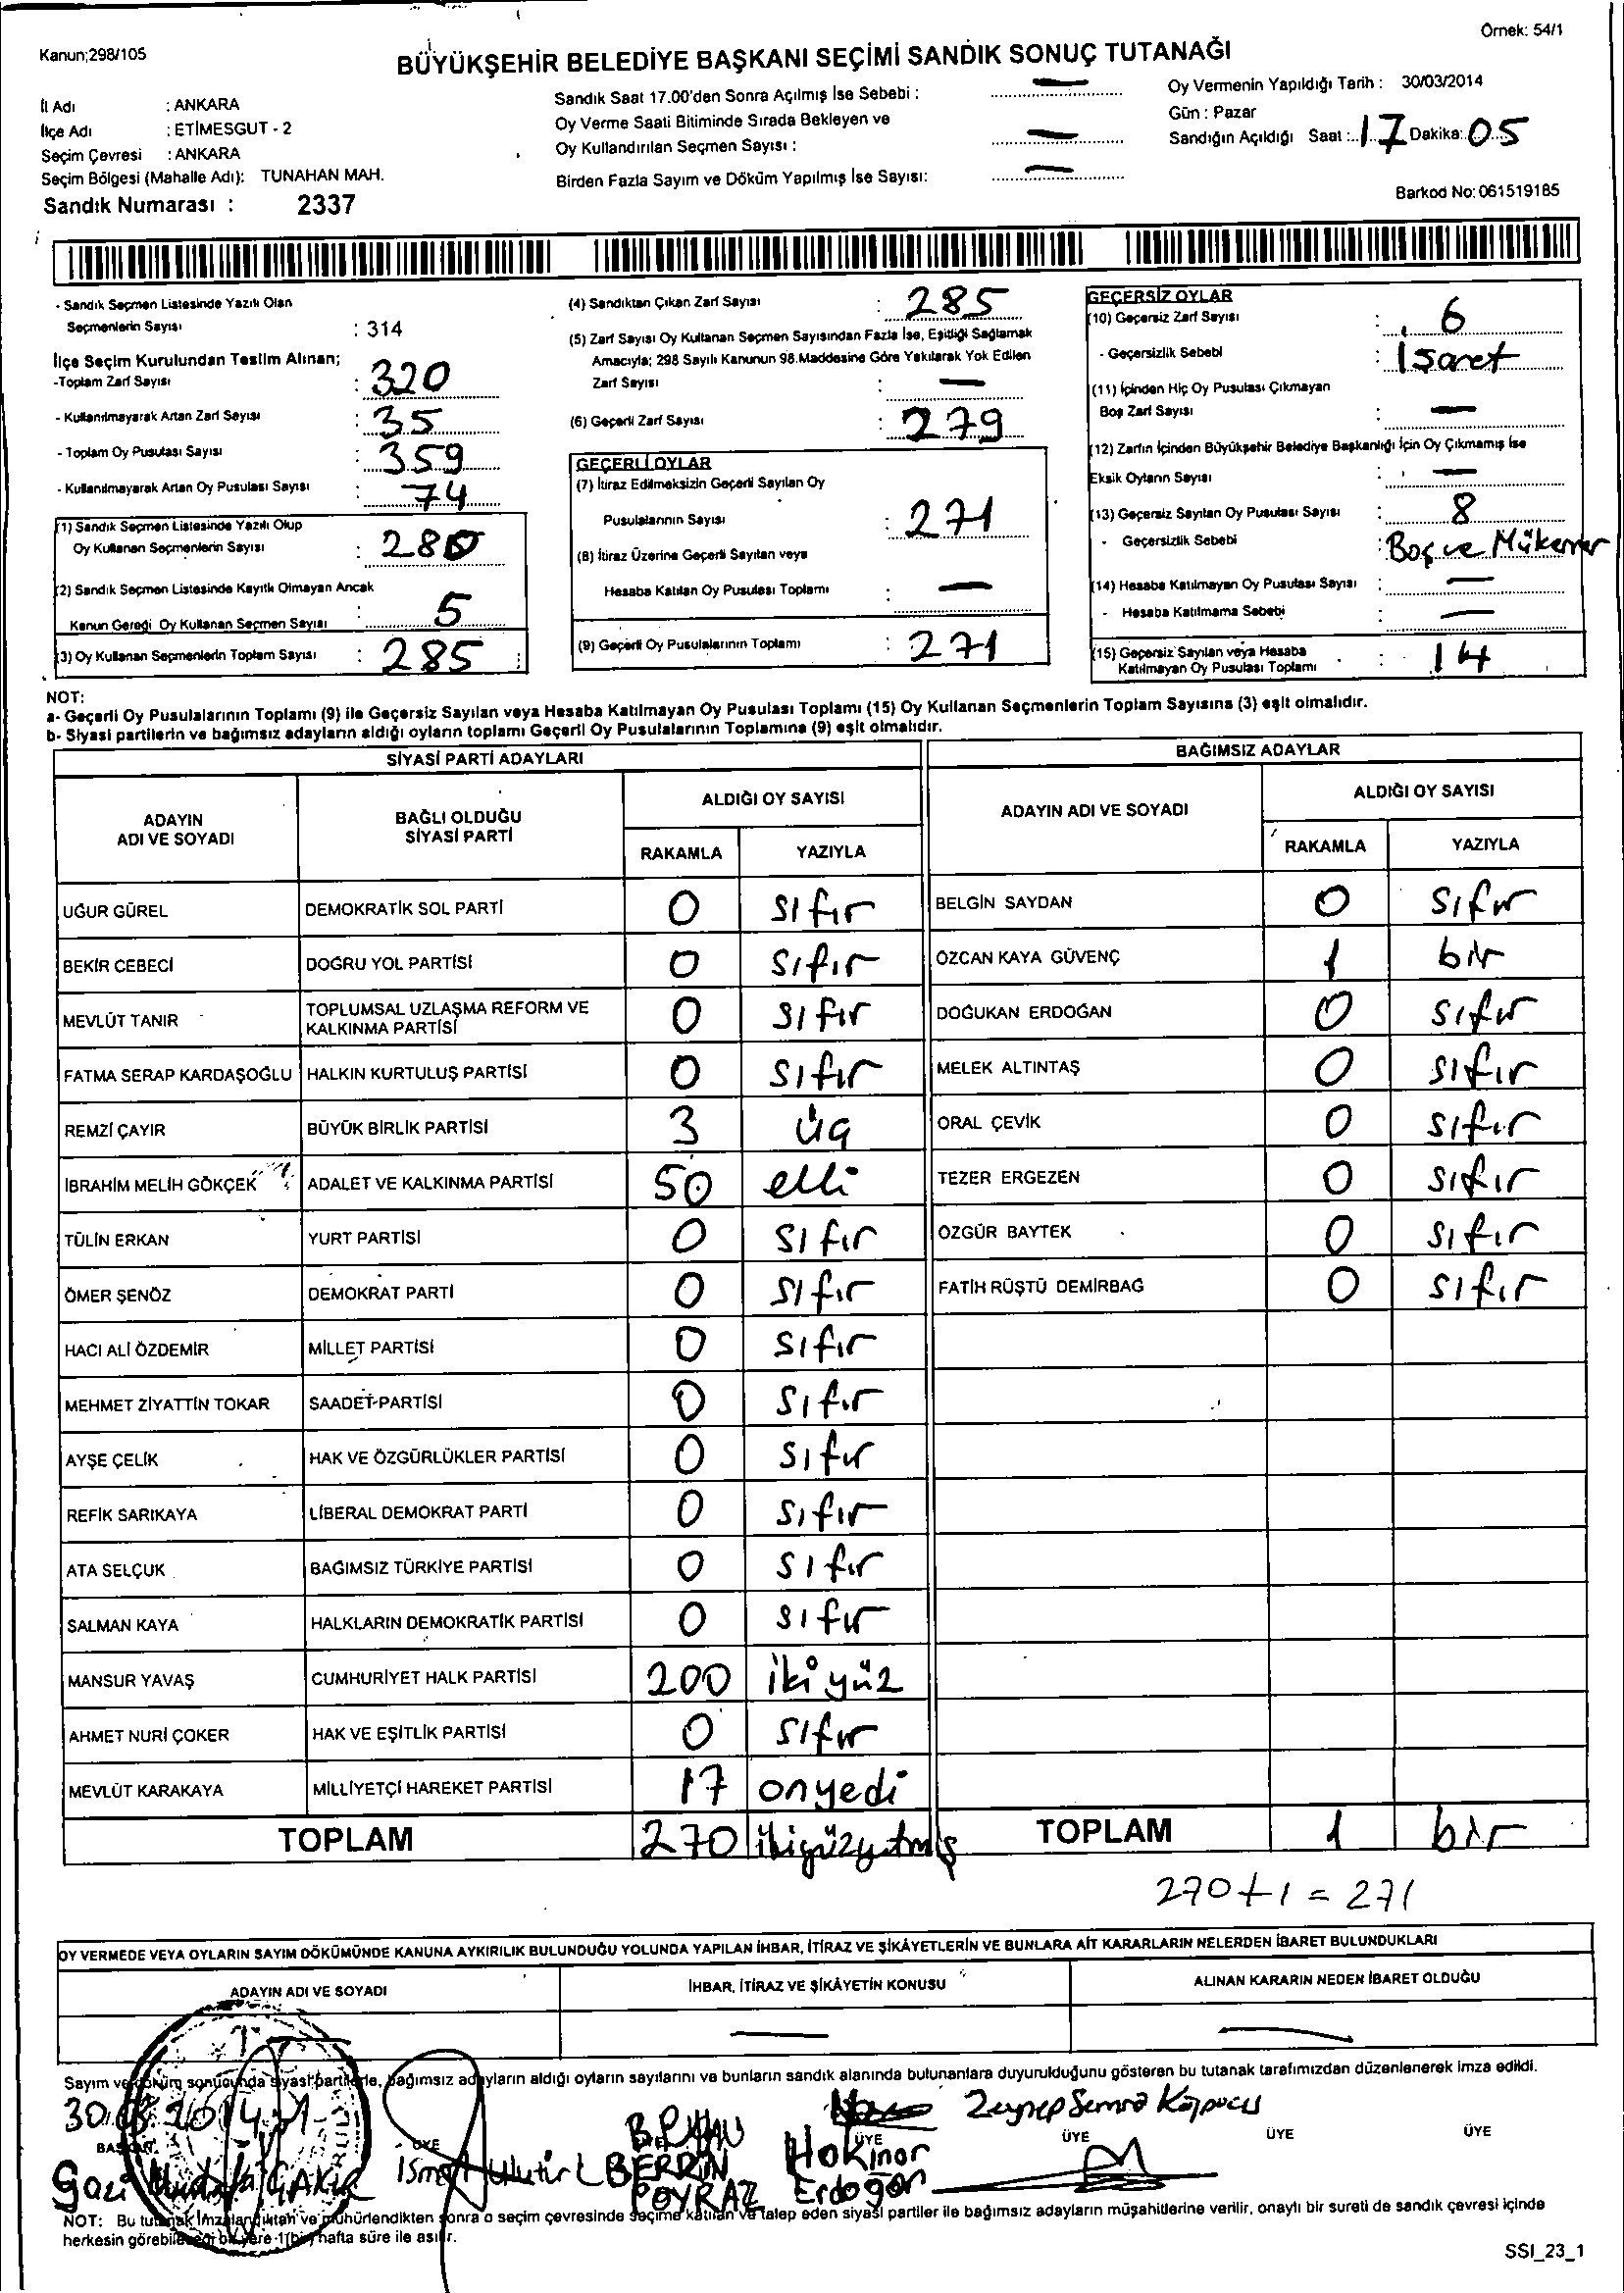 Örnek: 54/1
Kanun;298/105
BÜYÜKŞEHİR BELEDİYE BAŞKANI SEÇİMİ SANDIK SONUÇ TUTANAĞI
İl Adı : ANKARA
İlçe Adı : ETİMESGUT - 2
Seçim Çevresi : ANKARA
Seçim Bölgesi (Mahalle Adı): TUNAHAN MAH.
Sandık Numarası : 2337
Sandık Saat 17.00'den Sonra Açılmış İse Sebebi : —
Oy Verme Saati Bitiminde Sırada Bekleyen ve
Oy Kullandırılan Seçmen Sayısı : —
Birden Fazla Sayım ve Döküm Yapılmış İse Sayısı: —
Oy Vermenin Yapıldığı Tarih : 30/03/2014
Gün : Pazar
Sandığın Açıldığı Saat : 17 Dakika: 05
Barkod No: 061519185
- Sandık Seçmen Listesinde Yazılı Olan
Seçmenlerin Sayısı : 314
İlçe Seçim Kurulundan Teslim Alınan;
-Toplam Zarf Sayısı : 320
- Kullanılmayarak Artan Zarf Sayısı : 35
- Toplam Oy Pusulası Sayısı : 359
- Kullanılmayarak Artan Oy Pusulası Sayısı : 74
(1) Sandık Seçmen Listesinde Yazılı Olup
Oy Kullanan Seçmenlerin Sayısı : 280
(2) Sandık Seçmen Listesinde Kayıtlı Olmayan Ancak
Kanun Gereği Oy Kullanan Seçmen Sayısı : 5
(3) Oy Kullanan Seçmenlerin Toplam Sayısı : 285
(4) Sandıktan Çıkan Zarf Sayısı : 285
(5) Zarf Sayısı Oy Kullanan Seçmen Sayısından Fazla İse, Eşitliği Sağlamak
Amacıyla; 298 Sayılı Kanunun 98.Maddesine Göre Yakılarak Yok Edilen
Zarf Sayısı : —
(6) Geçerli Zarf Sayısı : 279
GEÇERLİ OYLAR
(7) İtiraz Edilmeksizin Geçerli Sayılan Oy
Pusulalarının Sayısı : 271
(8) İtiraz Üzerine Geçerli Sayılan veya
Hesaba Katılan Oy Pusulası Toplamı : —
(9) Geçerli Oy Pusulalarının Toplamı : 271
GEÇERSİZ OYLAR
(10) Geçersiz Zarf Sayısı : 6
- Geçersizlik Sebebi : İsaret
(11) İçinden Hiç Oy Pusulası Çıkmayan
Boş Zarf Sayısı : —
(12) Zarfın İçinden Büyükşehir Belediye Başkanlığı İçin Oy Çıkmamış İse
Eksik Oyların Sayısı : —
(13) Geçersiz Sayılan Oy Pusulası Sayısı : 8
- Geçersizlik Sebebi : Boş ve Mükerrer
(14) Hesaba Katılmayan Oy Pusulası Sayısı : —
- Hesaba Katılmama Sebebi : —
(15) Geçersiz Sayılan veya Hesaba
Katılmayan Oy Pusulası Toplamı : 14
NOT:
a- Geçerli Oy Pusulalarının Toplamı (9) ile Geçersiz Sayılan veya Hesaba Katılmayan Oy Pusulası Toplamı (15) Oy Kullanan Seçmenlerin Toplam Sayısına (3) eşit olmalıdır.
b- Siyasi partilerin ve bağımsız adayların aldığı oyların toplamı Geçerli Oy Pusulalarının Toplamına (9) eşit olmalıdır.
SİYASİ PARTİ ADAYLARI
ADAYIN ADI VE SOYADI BAĞLI OLDUĞU SİYASİ PARTİ ALDIĞI OY SAYISI
RAKAMLA YAZIYLA
UĞUR GÜREL DEMOKRATİK SOL PARTİ 0 sıfır
BEKİR CEBECİ DOĞRU YOL PARTİSİ 0 sıfır
MEVLÜT TANIR TOPLUMSAL UZLAŞMA REFORM VE KALKINMA PARTİSİ 0 sıfır
FATMA SERAP KARDAŞOĞLU HALKIN KURTULUŞ PARTİSİ 0 sıfır
REMZİ ÇAYIR BÜYÜK BİRLİK PARTİSİ 3 üç
İBRAHİM MELİH GÖKÇEK ADALET VE KALKINMA PARTİSİ 50 elli
TÜLİN ERKAN YURT PARTİSİ 0 sıfır
ÖMER ŞENÖZ DEMOKRAT PARTİ 0 sıfır
HACI ALİ ÖZDEMİR MİLLET PARTİSİ 0 sıfır
MEHMET ZİYATTİN TOKAR SAADET PARTİSİ 0 sıfır
AYŞE ÇELİK HAK VE ÖZGÜRLÜKLER PARTİSİ 0 sıfır
REFİK SARIKAYA LİBERAL DEMOKRAT PARTİ 0 sıfır
ATA SELÇUK BAĞIMSIZ TÜRKİYE PARTİSİ 0 sıfır
SALMAN KAYA HALKLARIN DEMOKRATİK PARTİSİ 0 sıfır
MANSUR YAVAŞ CUMHURİYET HALK PARTİSİ 200 iki yüz
AHMET NURİ ÇOKER HAK VE EŞİTLİK PARTİSİ 0 sıfır
MEVLÜT KARAKAYA MİLLİYETÇİ HAREKET PARTİSİ 17 onyedi
TOPLAM 270 ikiyüzyetmiş
BAĞIMSIZ ADAYLAR
ADAYIN ADI VE SOYADI ALDIĞI OY SAYISI
RAKAMLA YAZIYLA
BELGİN SAYDAN 0 sıfır
ÖZCAN KAYA GÜVENÇ 1 bir
DOĞUKAN ERDOĞAN 0 sıfır
MELEK ALTINTAŞ 0 sıfır
ORAL ÇEVİK 0 sıfır
TEZER ERGEZEN 0 sıfır
ÖZGÜR BAYTEK 0 sıfır
FATİH RÜŞTÜ DEMİRBAĞ 0 sıfır
TOPLAM 1 bir
270+1 = 271
OY VERMEDE VEYA OYLARIN SAYIM DÖKÜMÜNDE KANUNA AYKIRILIK BULUNDUĞU YOLUNDA YAPILAN İHBAR, İTİRAZ VE ŞİKÂYETLERİN VE BUNLARA AİT KARARLARIN NELERDEN İBARET BULUNDUKLARI
ADAYIN ADI VE SOYADI İHBAR, İTİRAZ VE ŞİKÂYETİN KONUSU ALINAN KARARIN NEDEN İBARET OLDUĞU
— —
Sayım ve döküm sonucunda siyasi partilerle, bağımsız adayların aldığı oyların sayılarını ve bunların sandık alanında bulunanlara duyurulduğunu gösteren bu tutanak tarafımızdan düzenlenerek imza edildi.
Zeynep Semra
BAŞKAN ÜYE ÜYE ÜYE ÜYE ÜYE
BERRİN
POYRAZ
Erdoğan
NOT: Bu tutanak imzalandıktan ve mühürlendikten sonra o seçim çevresinde seçime katılan ve talep eden siyasi partiler ile bağımsız adayların müşahitlerine verilir, onaylı bir sureti de sandık çevresi içinde
herkesin görebileceği bir yere 1(bir) hafta süre ile asılır.
SSI_23_1